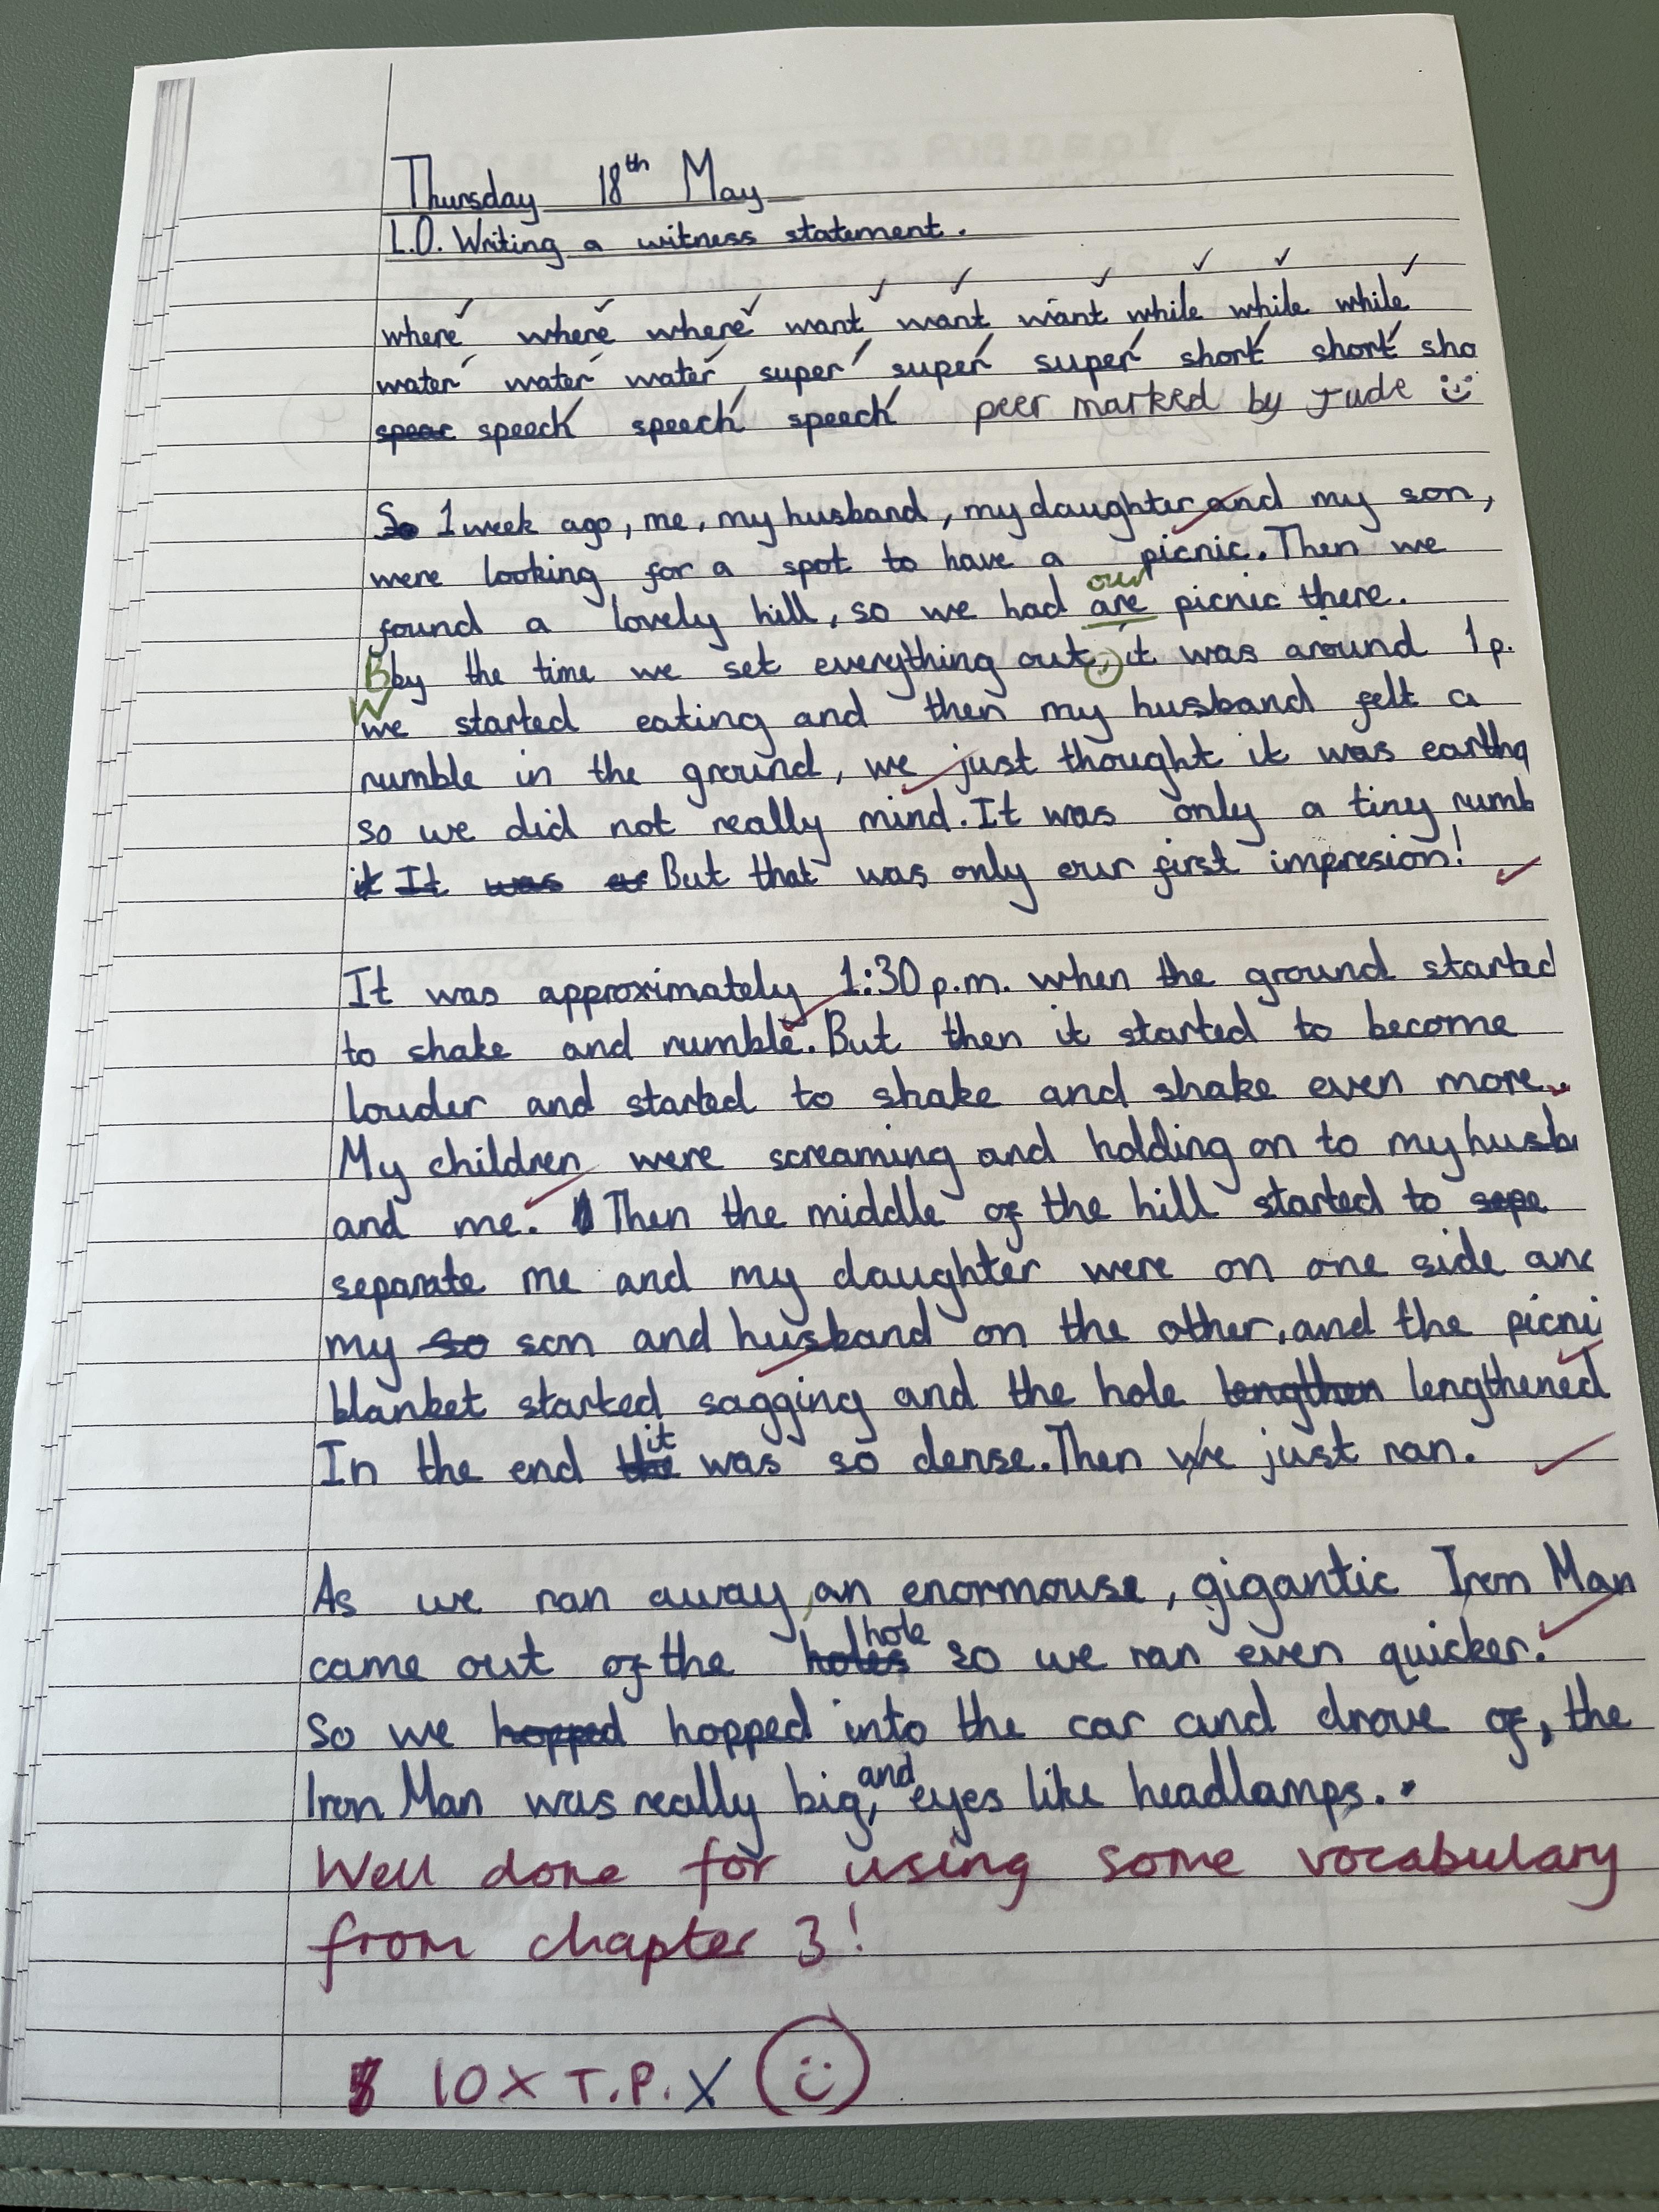 Thursday 18th May
L.O. Writing a witness statement.
where where where want want want while while while
water water water super super super short short sho
spear speech speech speech peer marked by Jude
So 1 week ago, me, my husband, my daughter and my son,
were looking for a spot to have a picnic. Then we
our
found a lovely hill, so we had are picnic there.
Bby the time we set everything out, it was around 1p.
Wwe started eating and then my husband felt a
rumble in the ground, we just thought it was earthq
so we did not really mind. It was only a tiny rumb
it It was a But that was only our first impresion!
It was approximately 1:30 p.m. when the ground started
to shake and rumble. But then it started to become
louder and started to shake and shake even more.
My children were screaming and holding on to my husb
and me. Then the middle of the hill started to sepe
separate me and my daughter were on one side and
my so son and husband on the other, and the picni
blanket started sagging and the hole lengthen lengthened
it
In the end the was so dense. Then we just ran.
As we ran away, an enormouse, gigantic Iron Man
hole
came out of the holes so we ran even quicker.
So we hopped hopped into the car and drove of, the
and
Iron Man was really big, eyes like headlamps..
Well done for using some vocabulary
from chapter 3!
10 x T.P. X